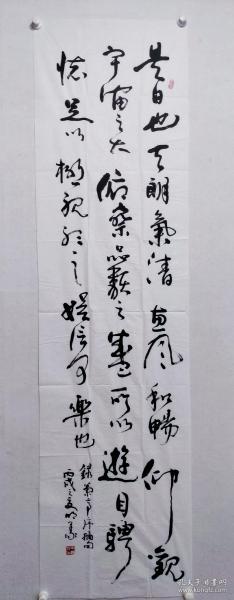 是日也天朗氣清惠風和暢仰觀
宇宙之大俯察品類之盛所以遊目騁
懷足以極視聽之娛信可樂也
錄蘭亭序摘句
丙戌之夏
孔夫子旧书网